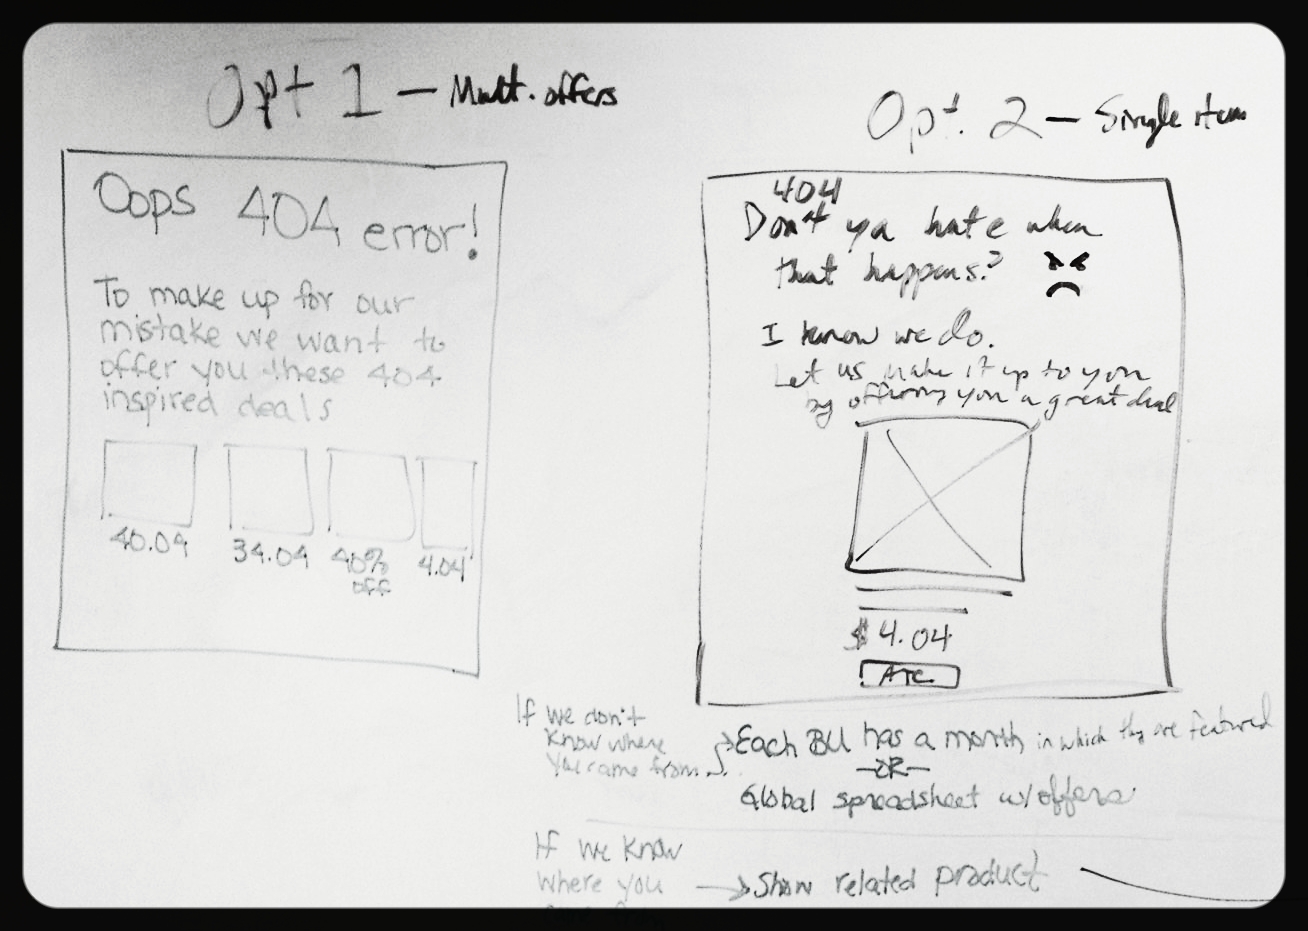 Opt 1 — Mult. offers
Oops 404 error!
To make up for our
mistake we want to
offer you these 404
inspired deals
40.04
34.04
40%
off
4.04
Opt. 2 — Single item
404
Don't ya hate when
that happens?
I know we do.
Let us make it up to you
by offering you a great deal
$4.04
ATC
If we don't
know where
you came from
Each BU has a month in which they are featured
—OR—
Global spreadsheet w/offers
If we know
where you
Show related product